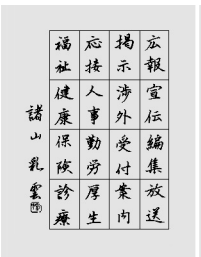 広報宣伝編集放送
掲示渉外受付案内
応接人事勤労厚生
福祉健康保険診療
諸山乳雲